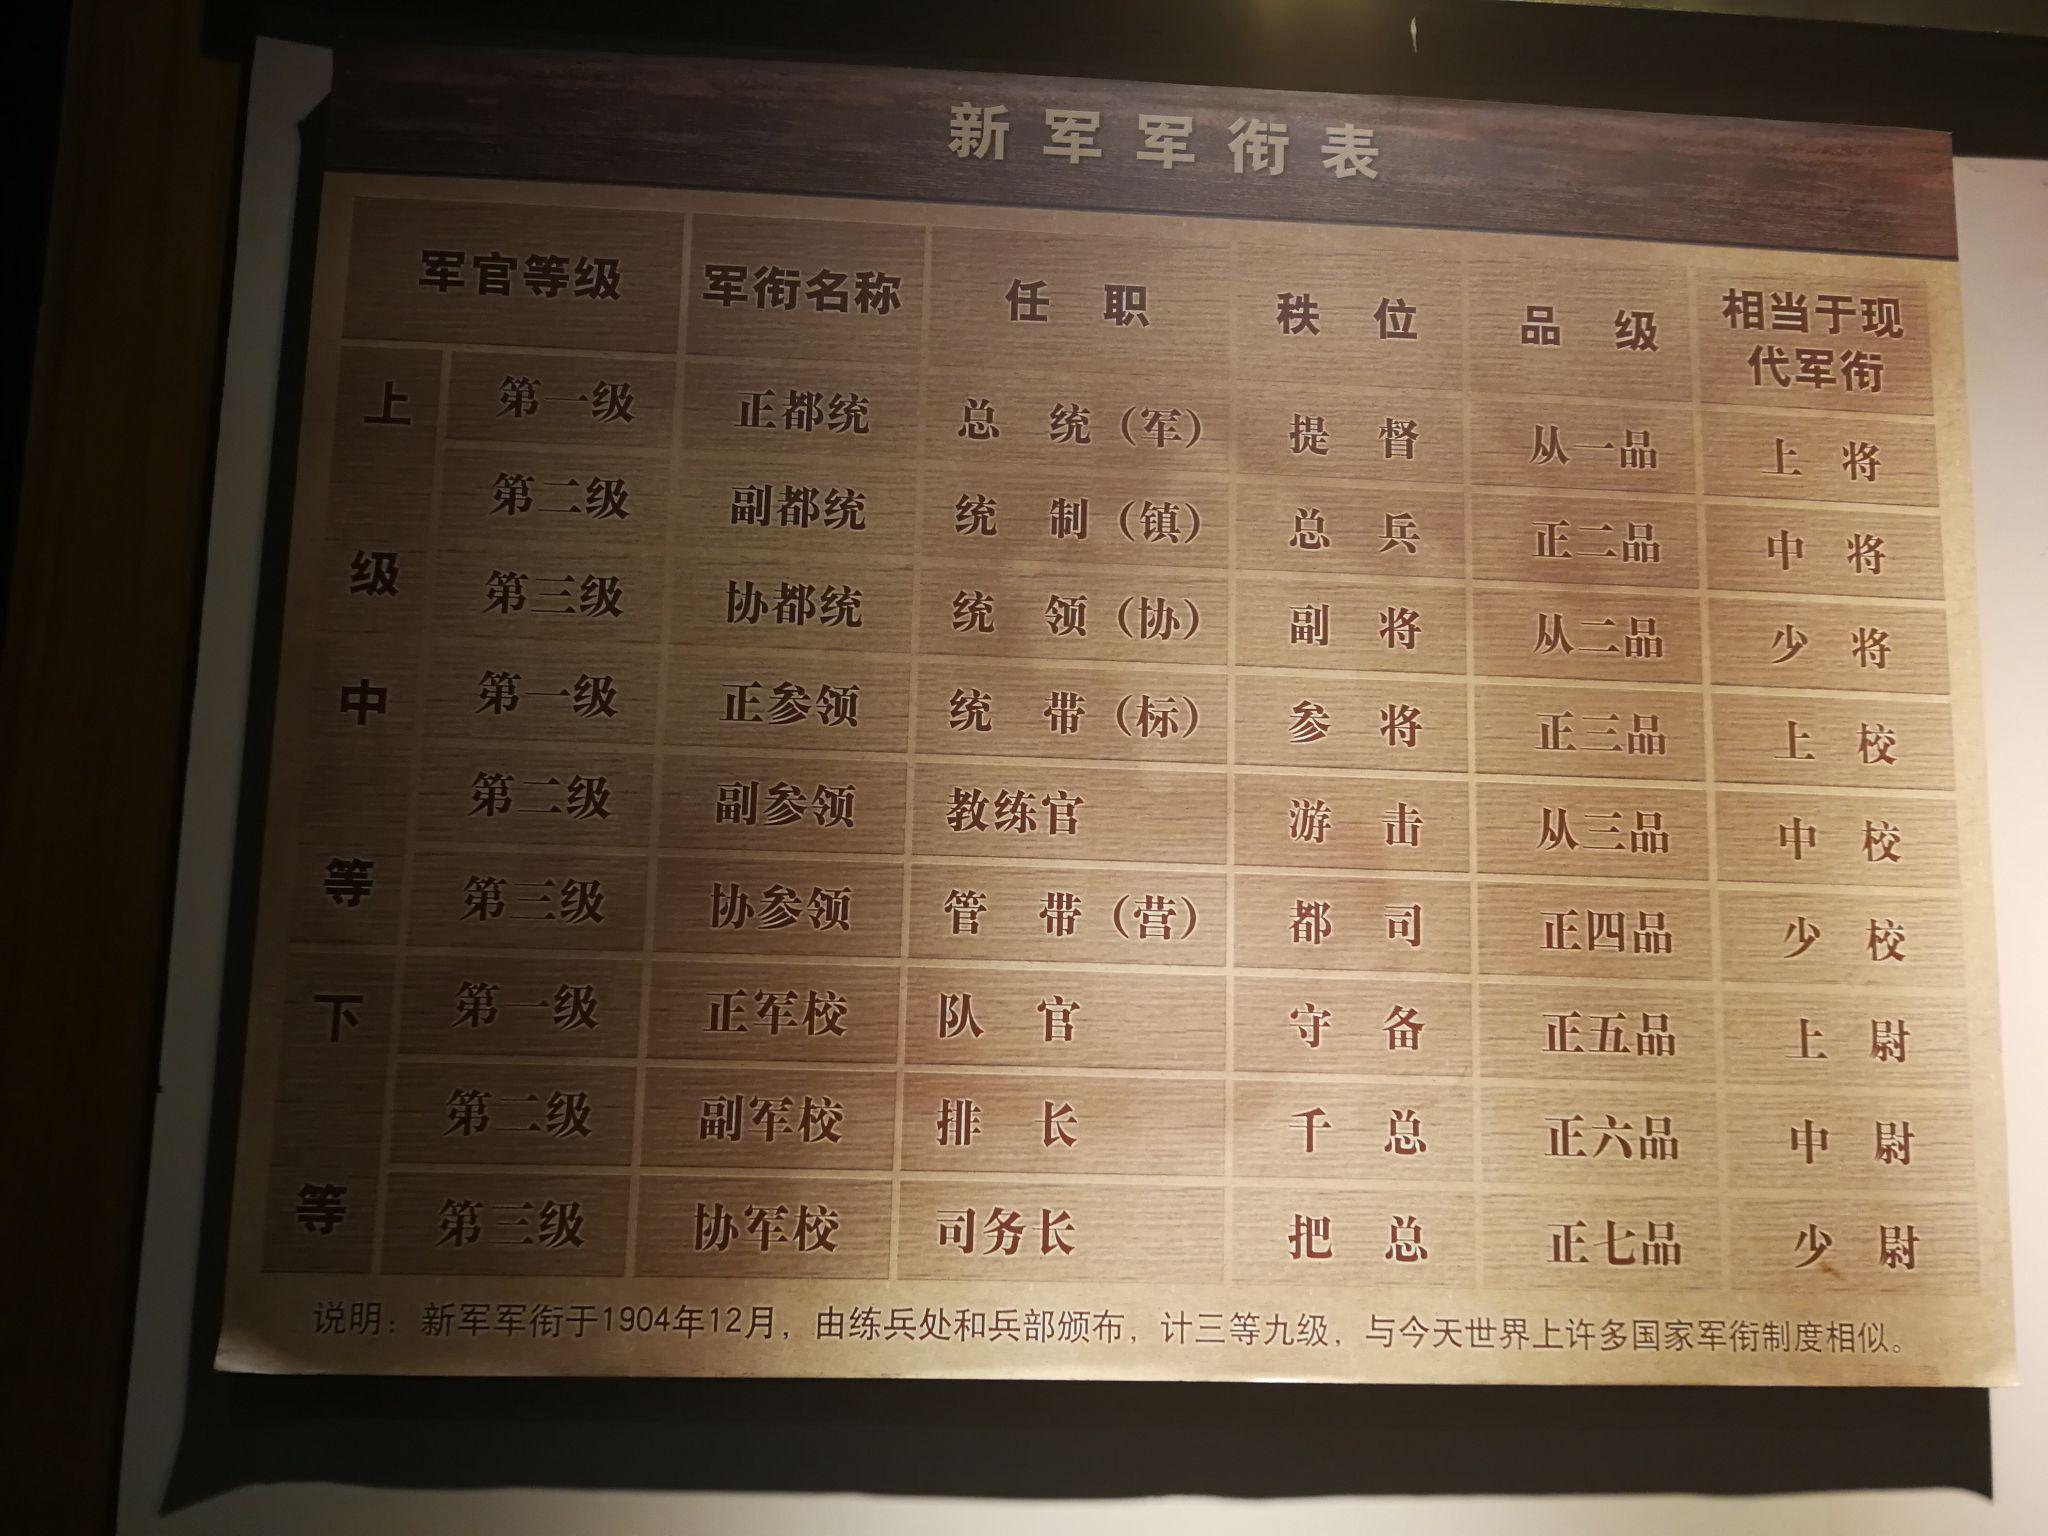 新军军衔表
军官等级 军衔名称 任职 秩位 品级 相当于现代军衔
上级 第一级 正都统 总统（军） 提督 从一品 上将
第二级 副都统 统制（镇） 总兵 正二品 中将
第三级 协都统 统领（协） 副将 从二品 少将
中等 第一级 正参领 统带（标） 参将 正三品 上校
第二级 副参领 教练官 游击 从三品 中校
第三级 协参领 管带（营） 都司 正四品 少校
下等 第一级 正军校 队官 守备 正五品 上尉
第二级 副军校 排长 千总 正六品 中尉
第三级 协军校 司务长 把总 正七品 少尉
说明：新军军衔于1904年12月，由练兵处和兵部颁布，计三等九级，与今天世界上许多国家军衔制度相似。